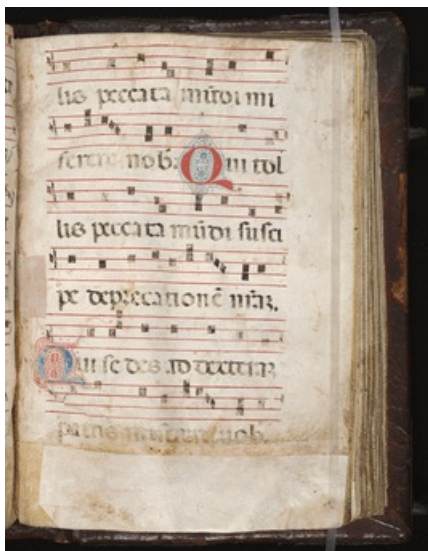 lis peccata mūdi mi
serere nob. Qui tol
lis peccata mūdi susci
pe deprecationē nr̄āȝ.
Qui sedes ad dexterā
patris miserere nob.